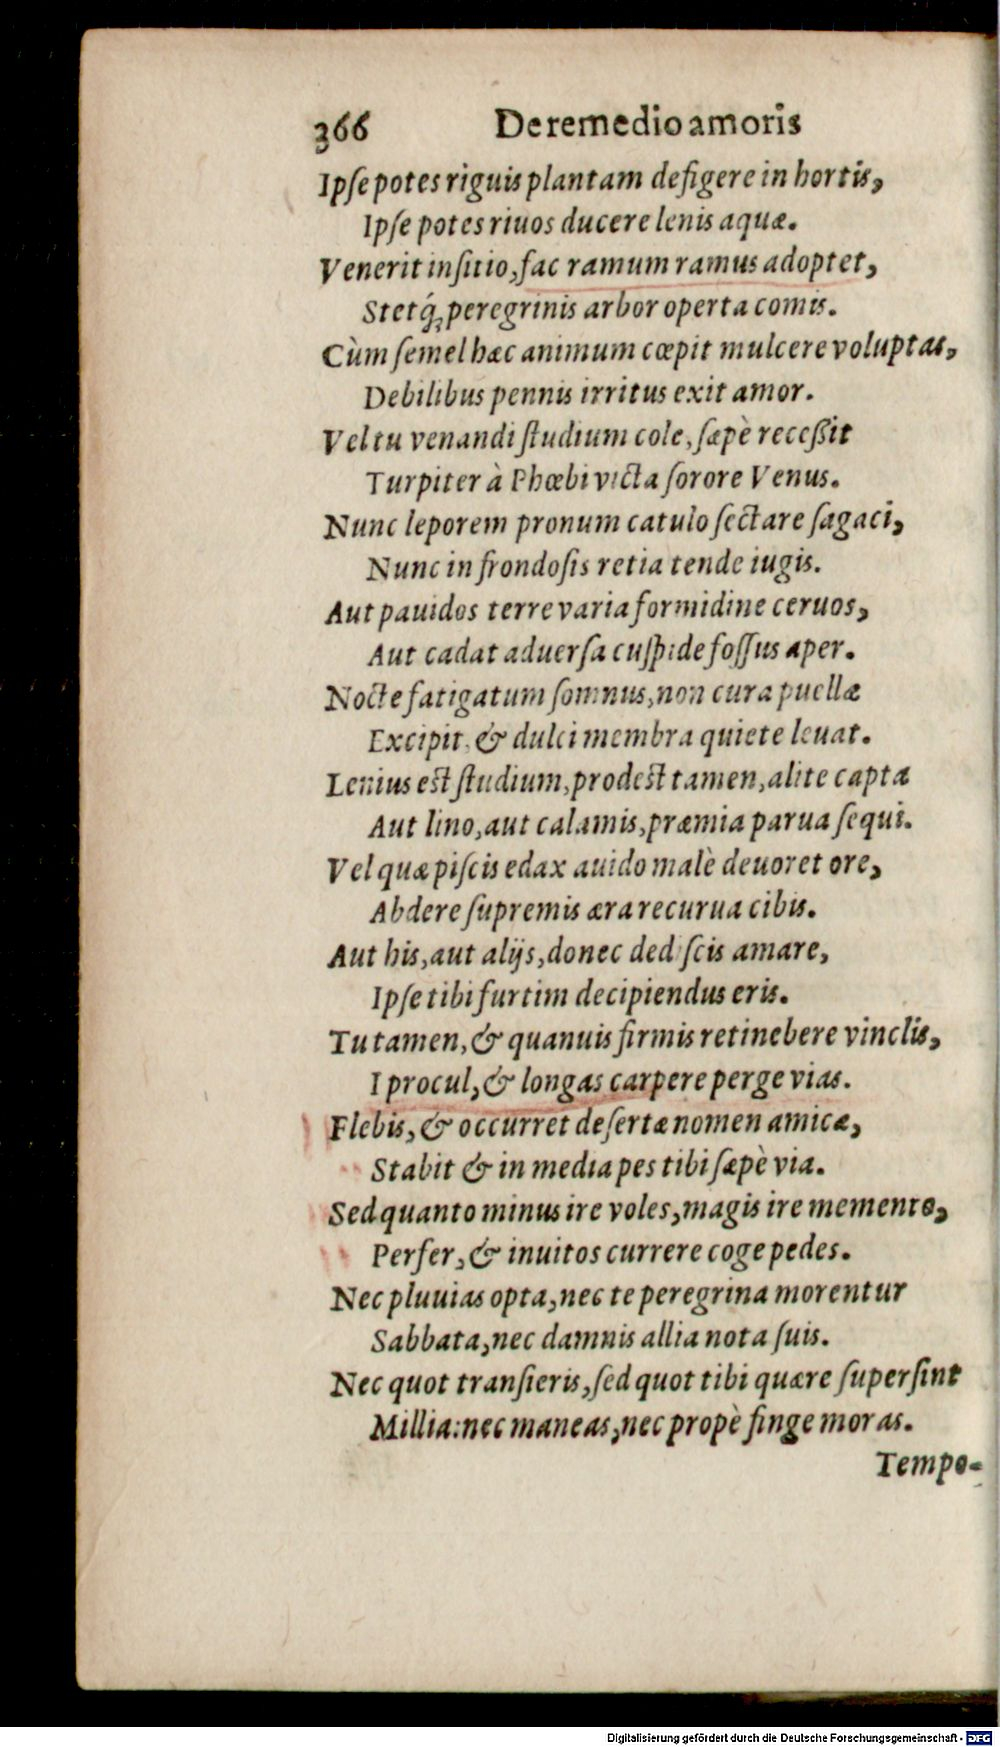 366 De remedio amoris
Ipſe potes riguis plantam defigere in hortis,
Ipſe potes riuos ducere lenis aquæ.
Venerit inſitio, fac ramum ramus adoptet,
Stetq́; peregrinis arbor operta comis.
Cùm ſemel hæc animum cœpit mulcere voluptas,
Debilibus pennis irritus exit amor.
Vel tu venandi ſtudium cole, ſæpè receßit
Turpiter à Phœbi victa ſorore Venus.
Nunc leporem pronum catulo ſectare ſagaci,
Nunc in frondoſis retia tende iugis.
Aut pauidos terre varia formidine ceruos,
Aut cadat aduerſa cuſpide foſſus aper.
Nocte fatigatum ſomnus, non cura puellæ
Excipit, & dulci membra quiete leuat.
Lenius est ſtudium, prodest tamen, alite capta
Aut lino, aut calamis, præmia parua ſequi.
Vel quæ piſcis edax auido malè deuoret ore,
Abdere ſupremis æra recurua cibis.
Aut his, aut alijs, donec dediſcis amare,
Ipſe tibi furtim decipiendus eris.
Tu tamen, & quanuis firmis retinebere vinclis,
I procul, & longas carpere perge vias.
Flebis, & occurret deſertæ nomen amicæ,
Stabit & in media pes tibi ſæpè via.
Sed quanto minus ire voles, magis ire memento,
Perfer, & inuitos currere coge pedes.
Nec pluuias opta, nec te peregrina morentur
Sabbata, nec damnis allia nota ſuis.
Nec quot tranſieris, ſed quot tibi quære ſuperſint
Millia: nec maneas, nec propè finge moras.
Tempo-
Digitalisierung gefördert durch die Deutsche Forschungsgemeinschaft - DFG